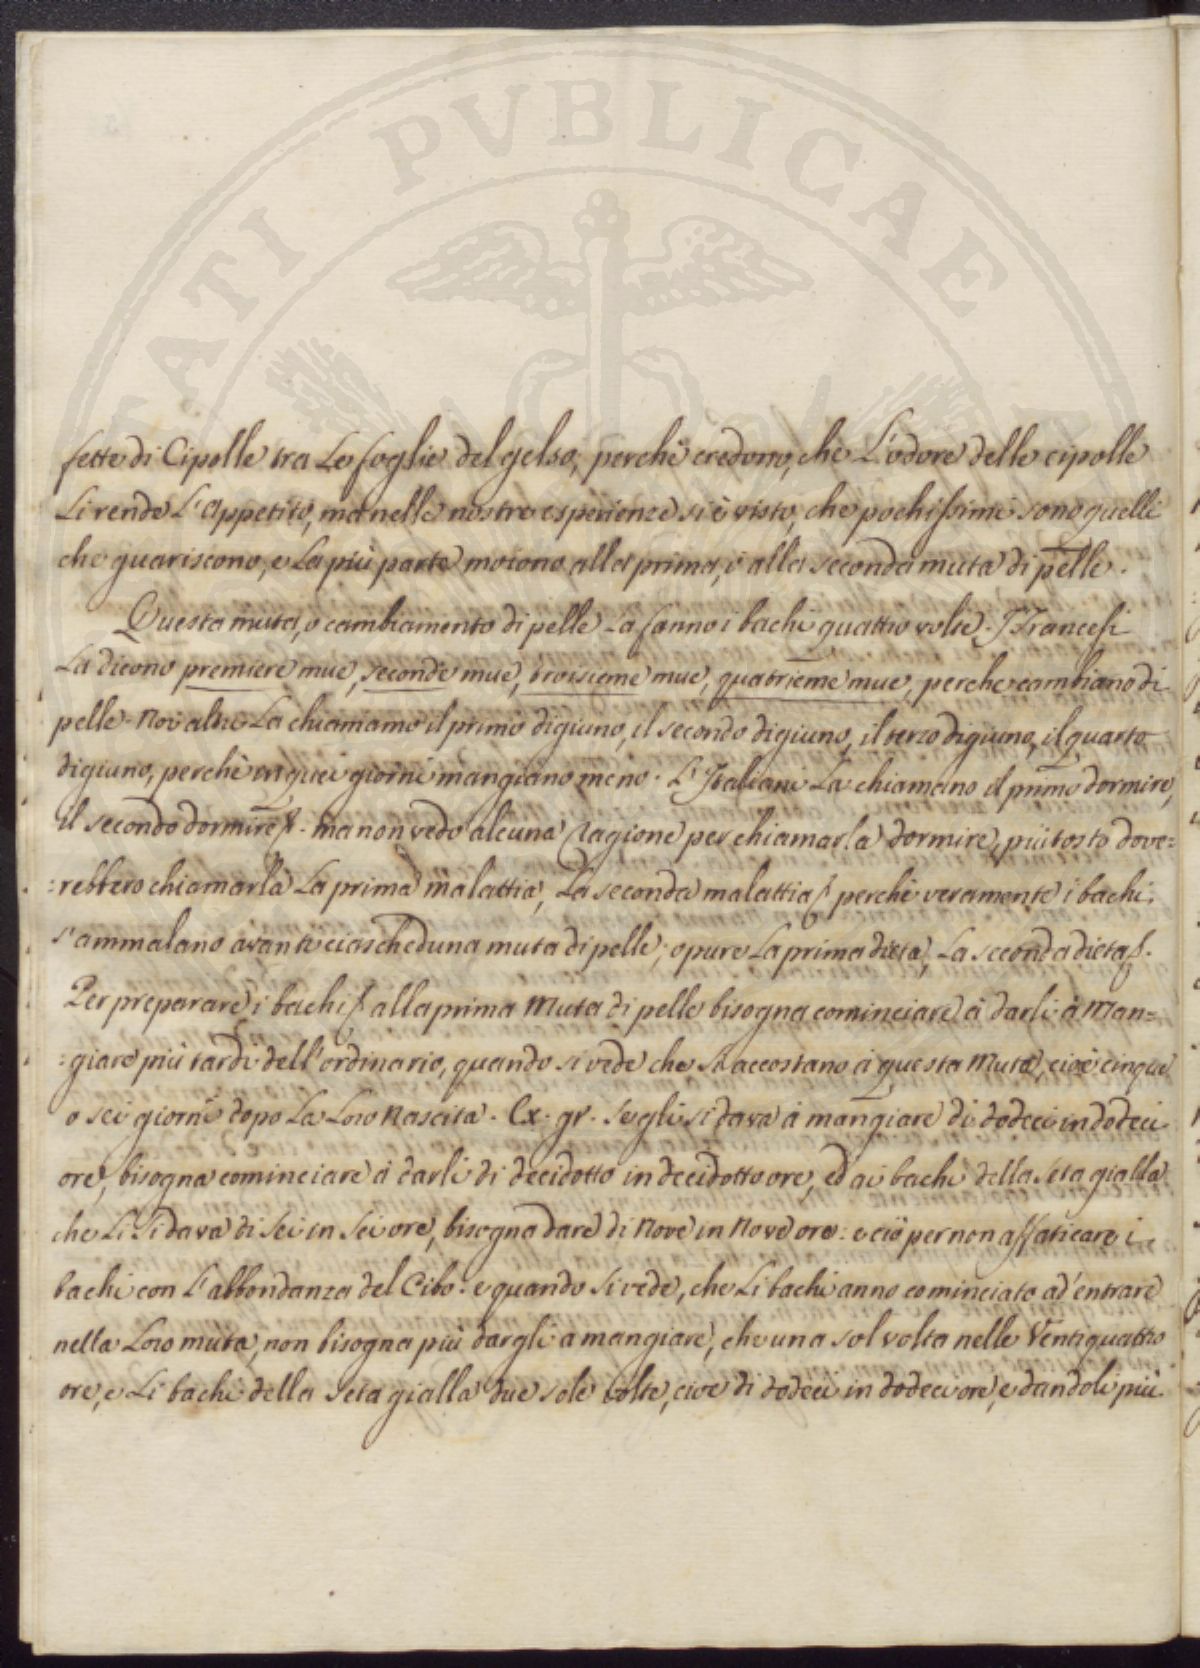 PVBLICAE
fette di Cipolle tra Le foglie del gelso, perchè credono, che L'odore delle cipolle
Li rende L'Appetito, ma nelle nostre esperienze si è visto, che pochissimi sono quelli
che guariscono, e La più parte moiono alla prima, o alla seconda muta di pelle.
Questa muta, o cambiamento di pelle La fanno i bachi quattro volte. I Francesi
La dicono premiere mue, seconde mue, troisieme mue, quatrieme mue, perche cambiano di
pelle. Noi altri La chiamamo il primo digiuno, il secondo digiuno, il terzo digiuno, il quarto
digiuno, perchè in quei giorni mangiano meno. L'Italiani La chiamano il primo dormire,
il secondo dormire. ma non vedo alcuna ragione per chiamarla dormire, più tosto dove=
:rebbero chiamarla La prima malattia, La seconda malattia perchè veramente i bachi
s'ammalano avante ciascheduna muta di pelle; opure La prima dieta, La seconda dieta.
Per preparare i bachi alla prima Muta di pelle bisogna cominciare à darli à Man=
:giare più tardi dell'ordinario, quando si vede che si accostano à questa Muta, cioè cinque
o sei giorni dopo La Loro Nascita. Ex. gr. Se gli si dava à mangiare di dodeci in dodeci
ore, bisogna cominciare à darli di decidotto in decidotto ore, ed ai bachi della Seta gialla
che Li Si dava di Sei in Sei ore, bisogna dare di Nove in Nove ore: e ciò per non affaticare i
bachi con L'abbondanza del Cibo: e quando Si vede, che Li bachi anno cominciato ad'entrare
nella Loro muta, non bisogna più dargli a mangiare, che una sol volta nelle Ventiquattro
ore, e Li bachi della Seta gialla due sole volte, cioè di dodeci in dodeci ore, e dandoli più